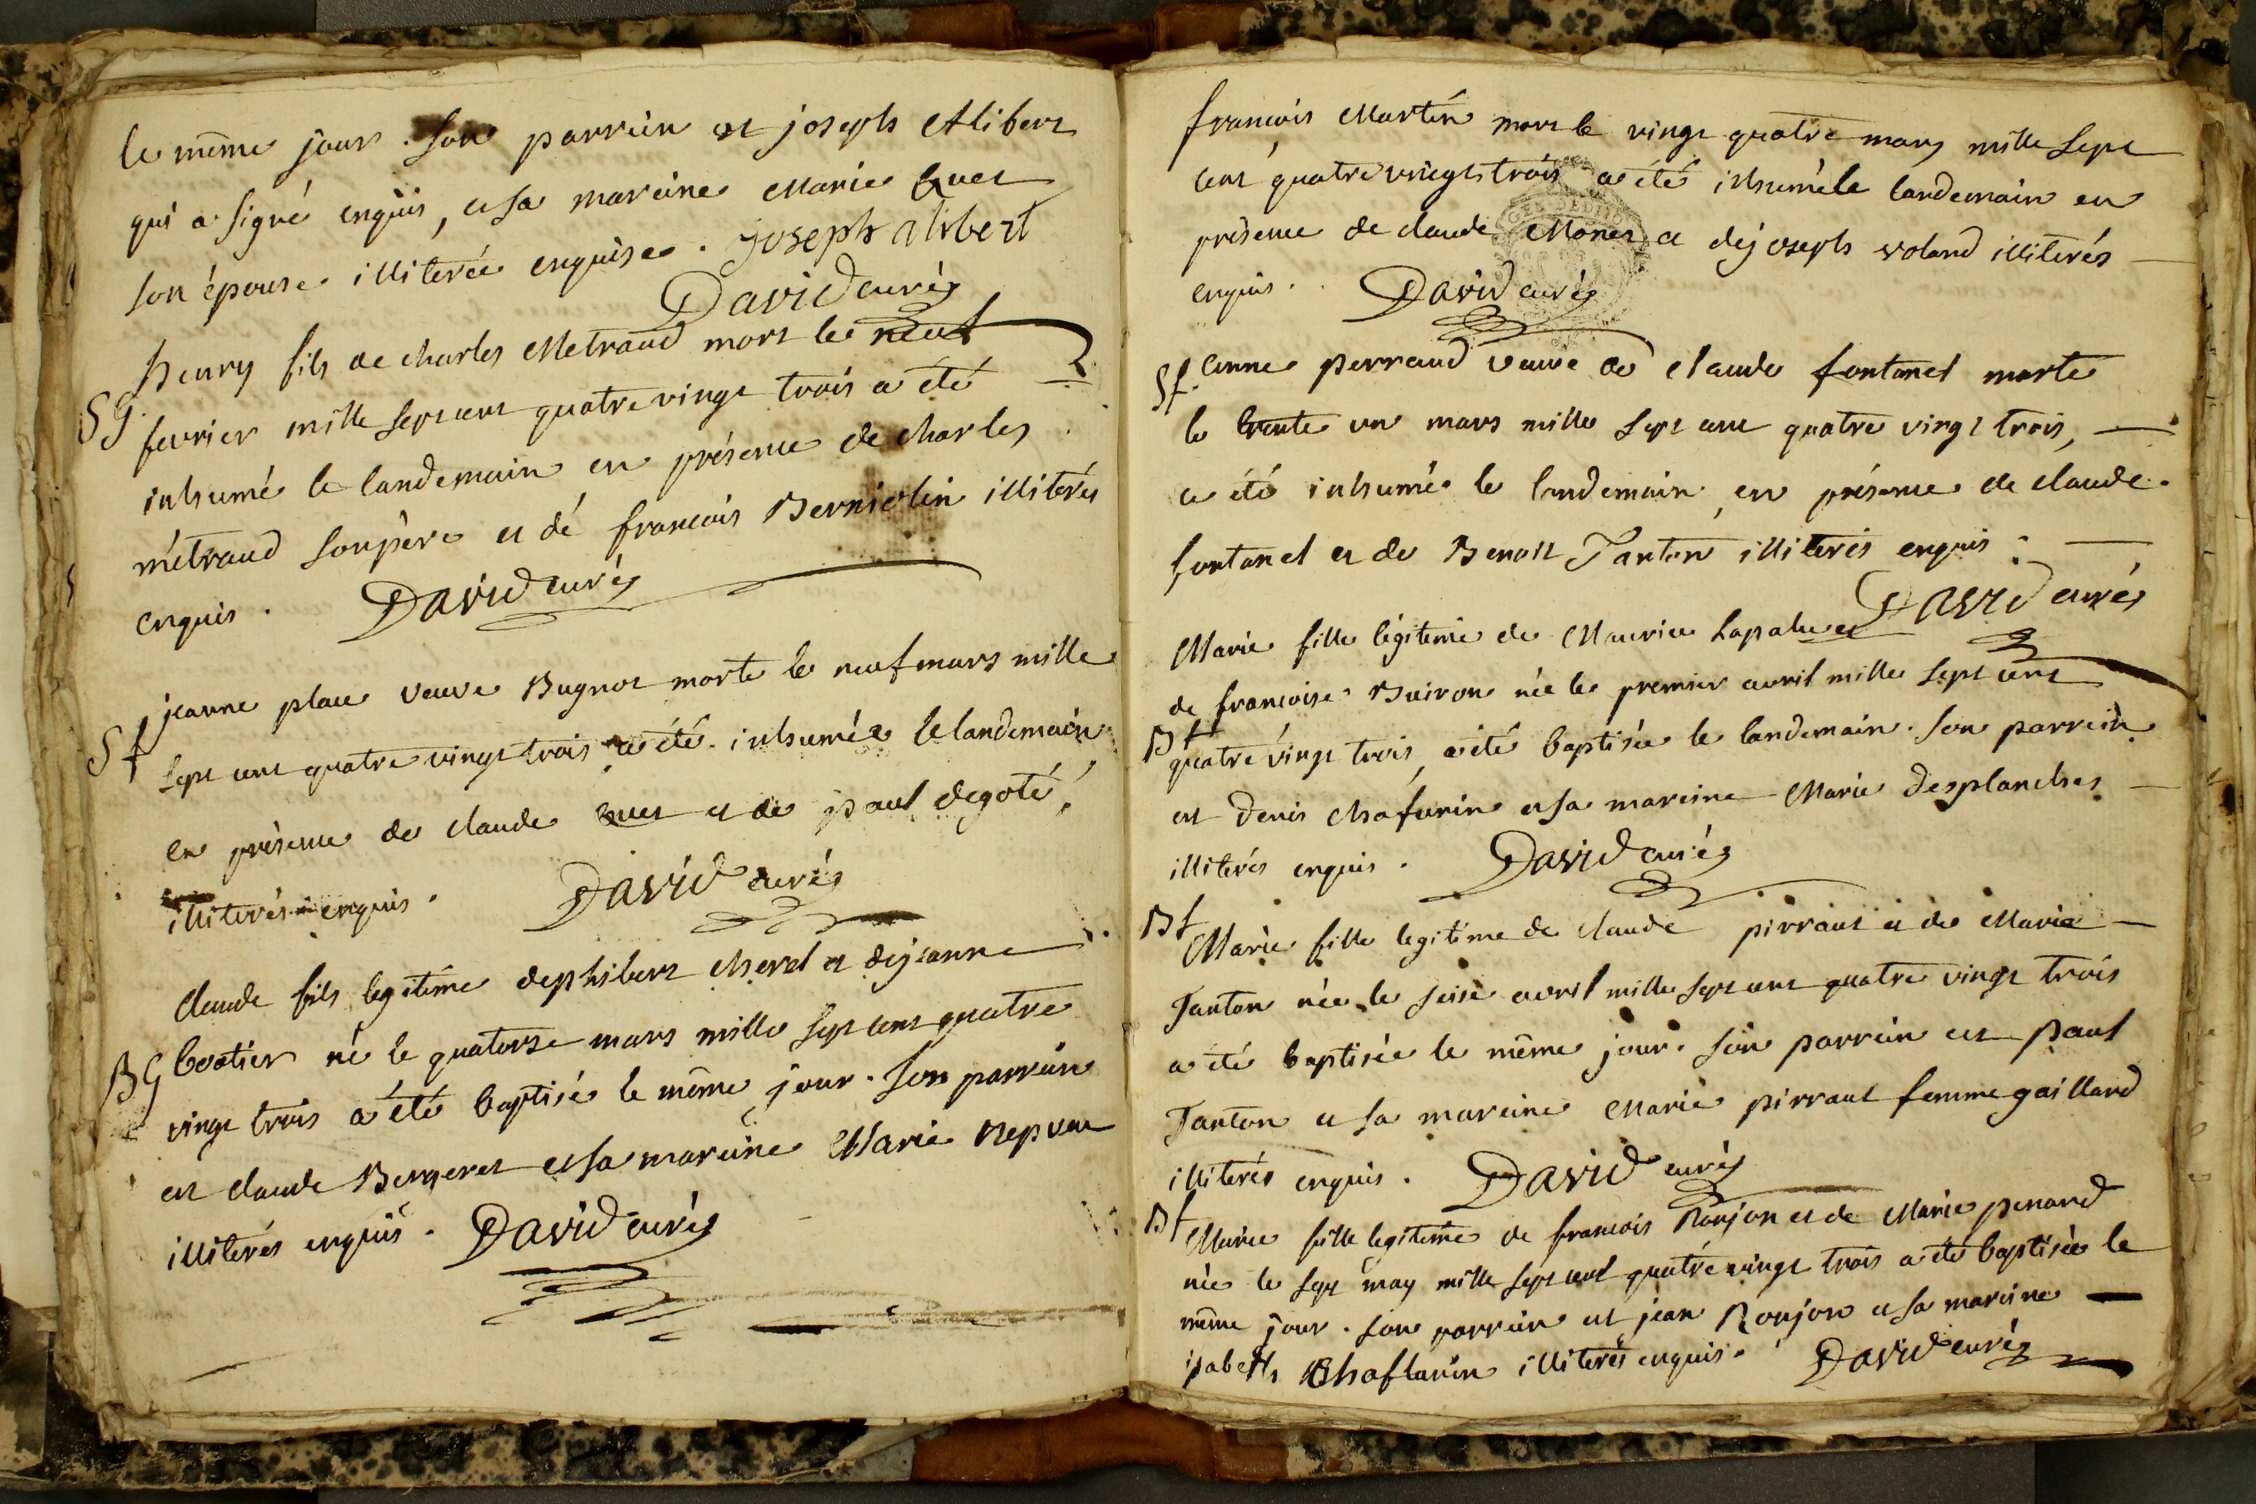 le même jour. son parrein est joseph Alibert
qui a signé enquis, et sa mareine Marie Guet
son épouse illiterée enquise. joseph alibert
David curé
henry fils de charles Metraud mort le neuf
SG
fevrier mille sept cent quatre vingt trois a été
inhumé le landemain en présence de charles
métraud son père et dé francois Berniolin illiterés
enquis. David curé
jeanne place veuve Bugnot morte le neuf mars mille
Sf
sept cent quatre vingt trois a été inhumée le landemain
en présence de claude et de paul degoté,
illiterés enquis. David curé
Claude fils legitime de philibert cherel et de jeanne
BG boatier né le quatorse mars mille sept cent quatre
vingt trois a été baptisé le même jour. son parrein
est claude Bergeret et sa mareine Marie Nepveu
illiterés enquis. David curé
francois Martin mort le vingt quatre mars mille sept
cent quatre vingt trois a été inhumé le landemain en
présence de claude Monet et de joseph voland illiterés
enquis. David curé
Sf. anne perraud veuve de claude fontanel morte
le trente un mars mille sept cent quatre vingt trois,
a été inhumé le landemain, en présence de claude
fontanel et de Benoit Tanton illiterés enquis.
David curé
Marie fille légitime de Maurice Lapalue et
de francoise Buiron née le premier avril mille sept cent
Bf
quatre vingt trois a été baptisée le landemain. son parrein
est denis chafurin et sa mareine Marie desplanches
illiterés enquis. David curé
Bf
Marie fille legitime de claude pirraut et de Marie
Tanton née le seise avril mille sept cent quatre vingt trois
a été baptisée le même jour. son parrein est paul
Tanton et sa mareine Marie pirraut femme gaillard
illiterés enquis. David curé
Bf
Marie fille legitime de francois Ronjon et de Marie penard
née le sept may mille sept cent quatre vingt trois a été baptisée le
même jour. son parrein est jean Ronjon et sa mareine
isabeth illiterés enquis. David curé